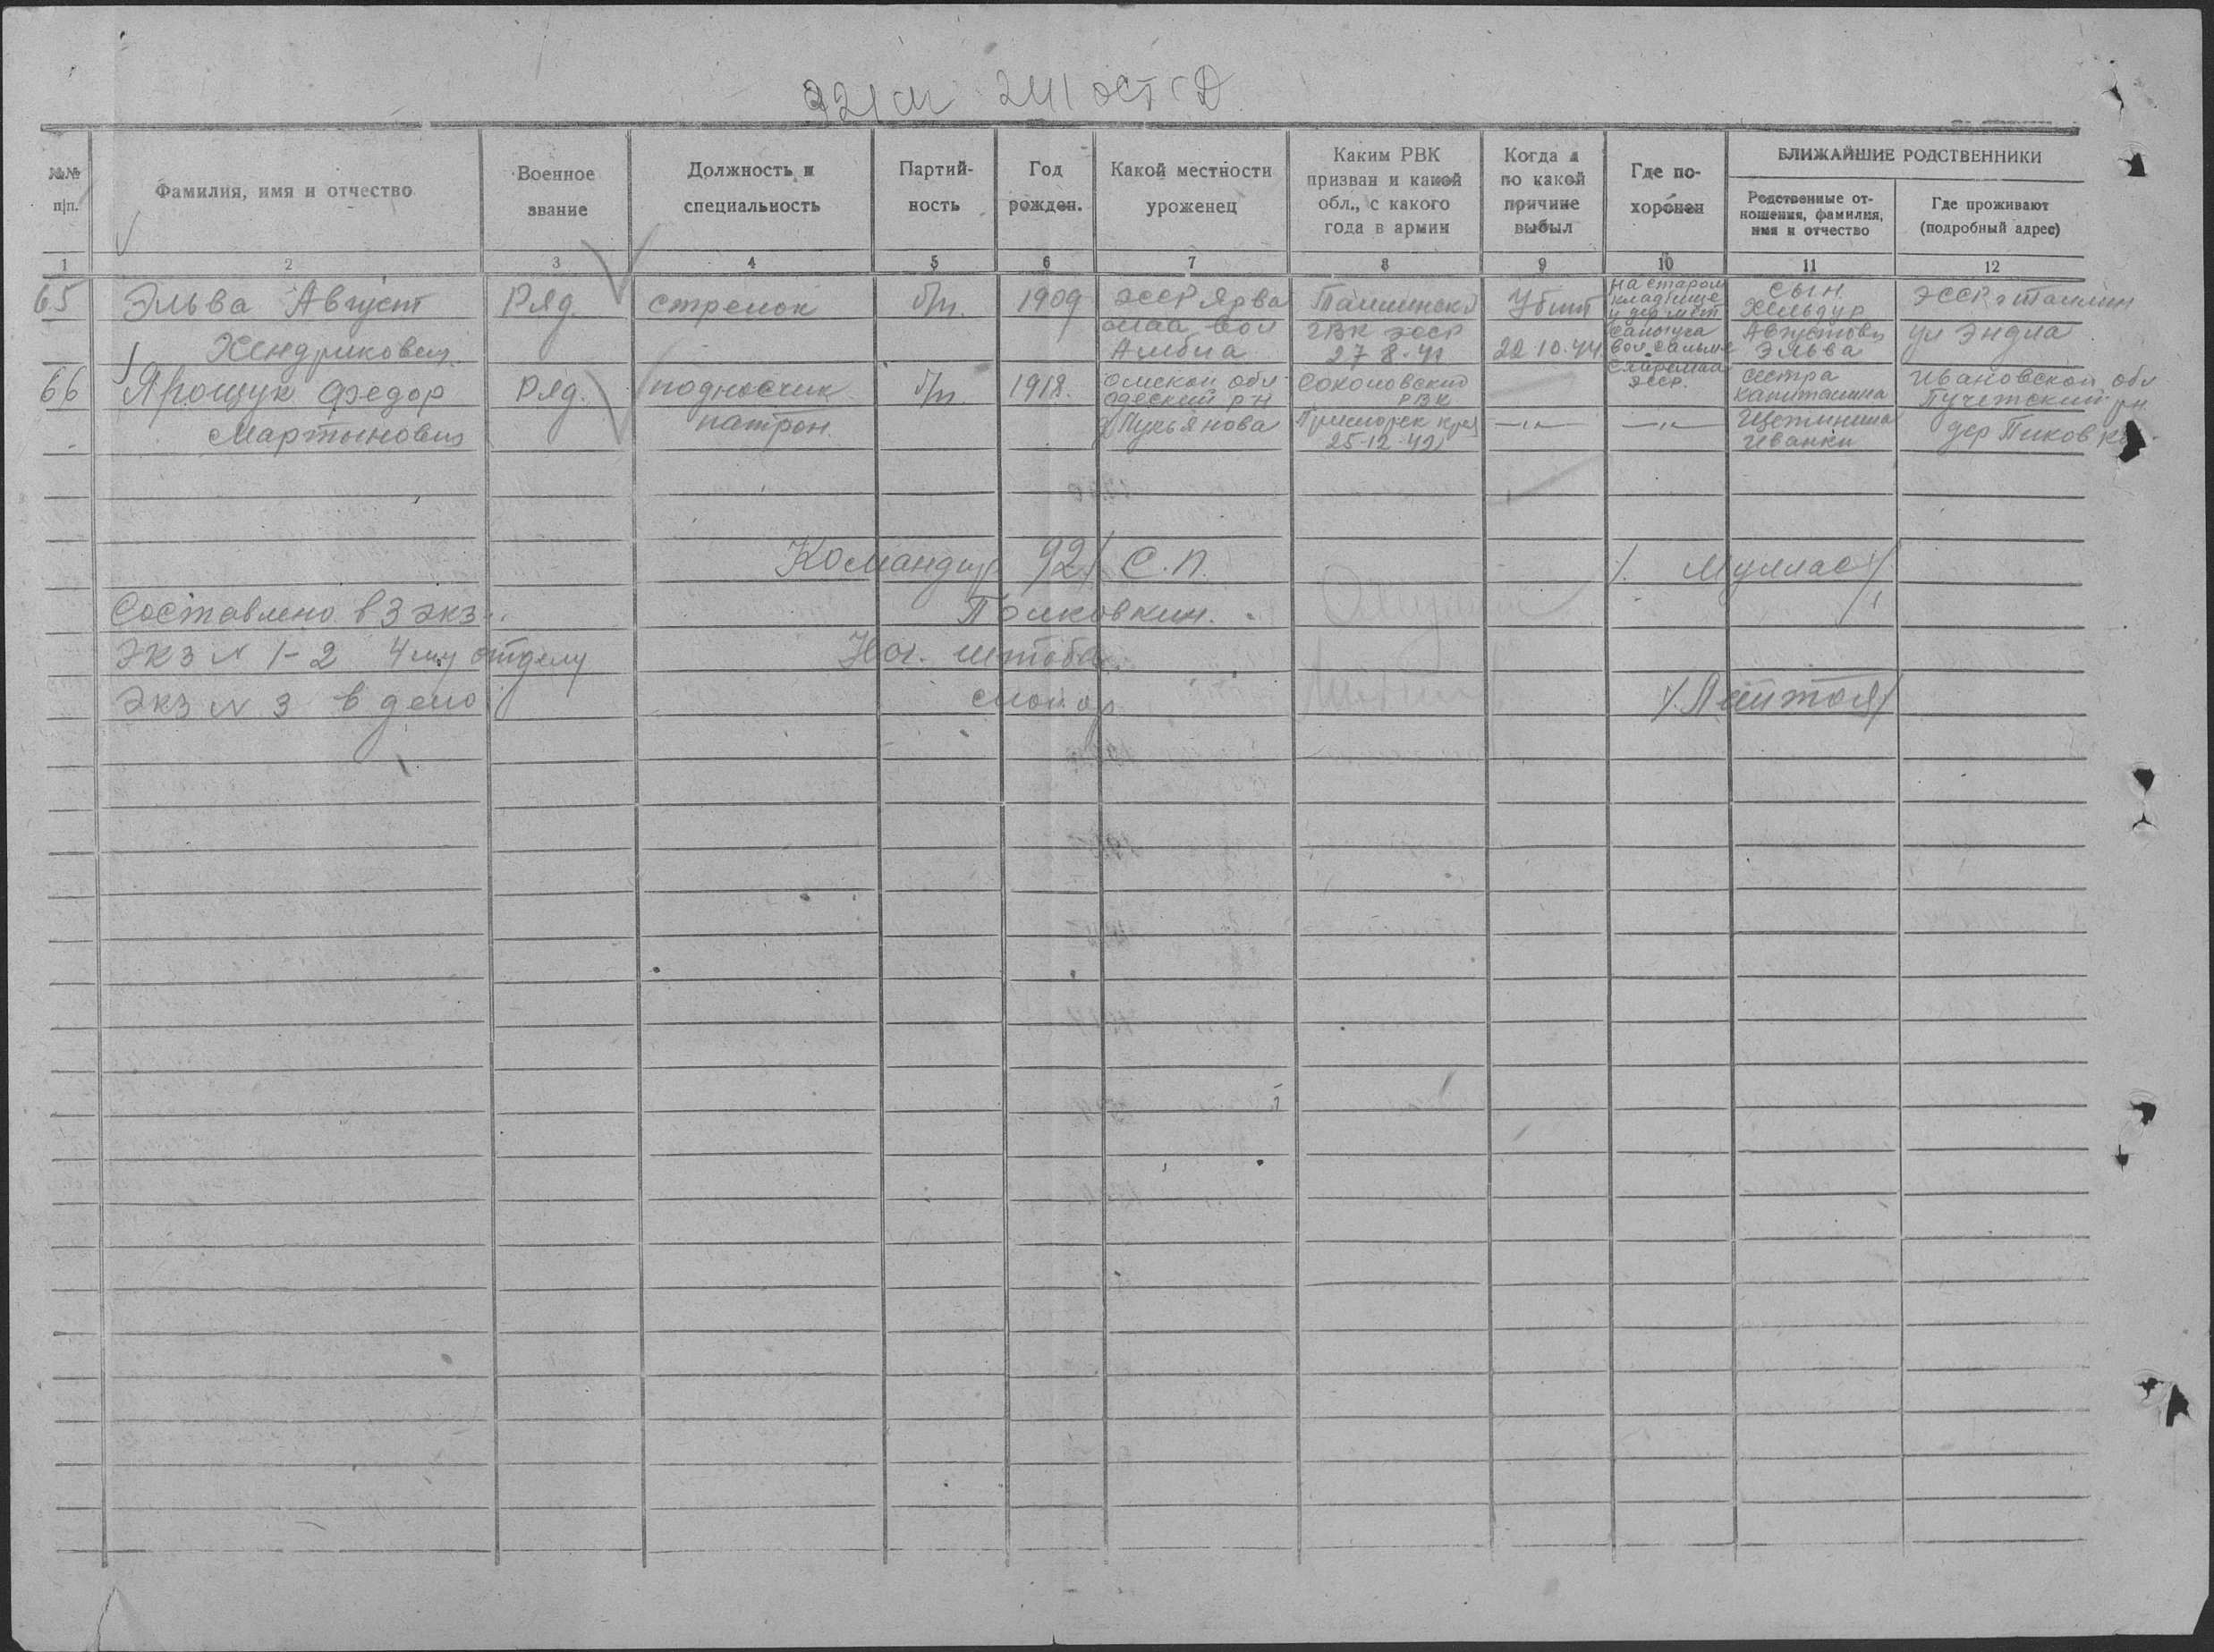 921 сп 249 ЭСТ СД
№№ п|п.
Фамилия, имя и отчество
Военное звание
Должность и специальность
Партий- ность
Год рожден.
Какой местности уроженец
Каким РВК призван и какой обл., с какого года в армии
Когда и по какой причине выбыл
Где по- хоронен
БЛИЖАЙШИЕ РОДСТВЕННИКИ
Родственные от- ношения, фамилия, имя и отчество
Где проживают (подробный адрес)
1 2 3 4 5 6 7 8 9 10 11 12
65 Эльва Август Ряд. стрелок б/п. 1909 ЭССР Ярва Таллинский Убит на старом кладбище сын Хельдур ЭССР г Таллин
Хендрикович маа вол Амбла ГВК ЭССР 27 8-41 22.10.44 вол. Сальме Сааремаа ЭССР. Августович Эльва ул Эндла
66 Ярощук Федор Ряд. подносчик б/п. 1918. Омской обл Одесский р-н Соколовский РВК сестра Капиталина Ивановской обл
Мартынович патрон д Лукьянова Приморск кра 25-12-42 —„— —„— Щетинина дер
Командир 921 С.П. /. Муллас /
Составлено в 3 экз. Полковник.
Экз № 1-2 4 му отделу Нач. штаба
Экз № 3 в дело майор